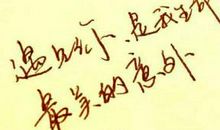 遇见你 是我生命
最美的意外